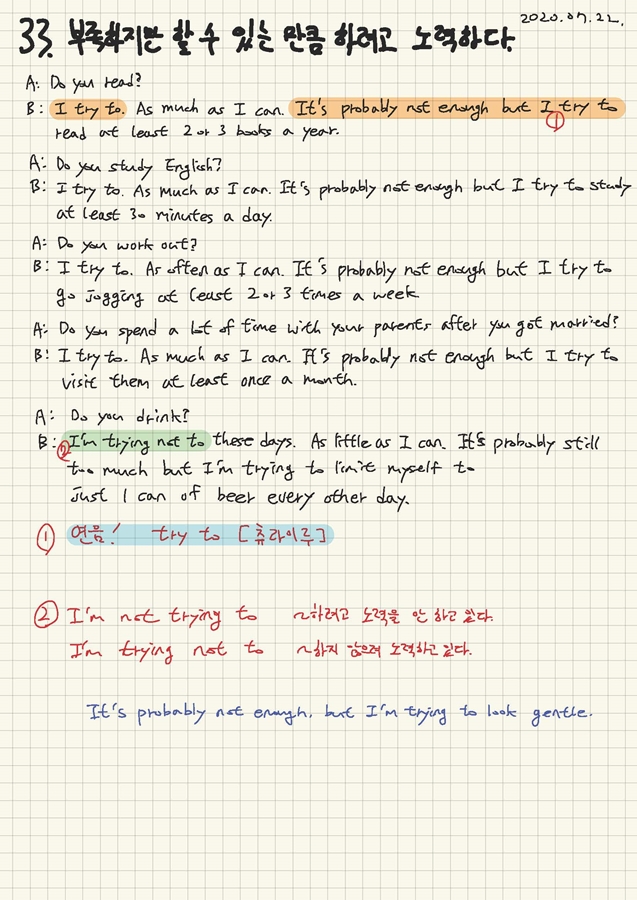 2020.07.22.
33. 부족하지만 할 수 있는 만큼 하려고 노력하다.
A: Do you read?
B: I try to. As much as I can. It's probably not enough but I try to
①
read at least 2 or 3 books a year.
A: Do you study English?
B: I try to. As much as I can. It's probably not enough but I try to study
at least 30 minutes a day.
A: Do you work out?
B: I try to. As often as I can. It's probably not enough but I try to
go jogging at least 2 or 3 times a week
A: Do you spend a lot of time with your parents after you got married?
B: I try to. As much as I can. It's probably not enough but I try to
visit them at least once a month.
A: Do you drink?
B: ② I'm trying not to these days. As little as I can. It's probably still
too much but I'm trying to limit myself to
just 1 can of beer every other day.
① 연음! try to [츄라이루]
② I'm not trying to ~하려고 노력을 안 하고 있다.
I'm trying not to ~하지 않으려 노력하고 있다.
It's probably not enough, but I'm trying to look gentle.